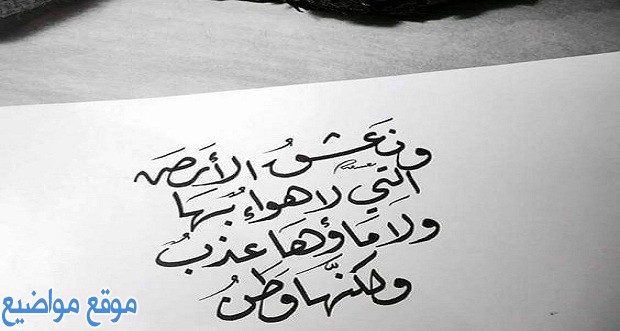 ونَعَشقُ الأرضَ
التي لا هواءُ بهَا
ولا مَاؤهَا عذبُ
ولكنّها وَطنُ
موقع مواضيع